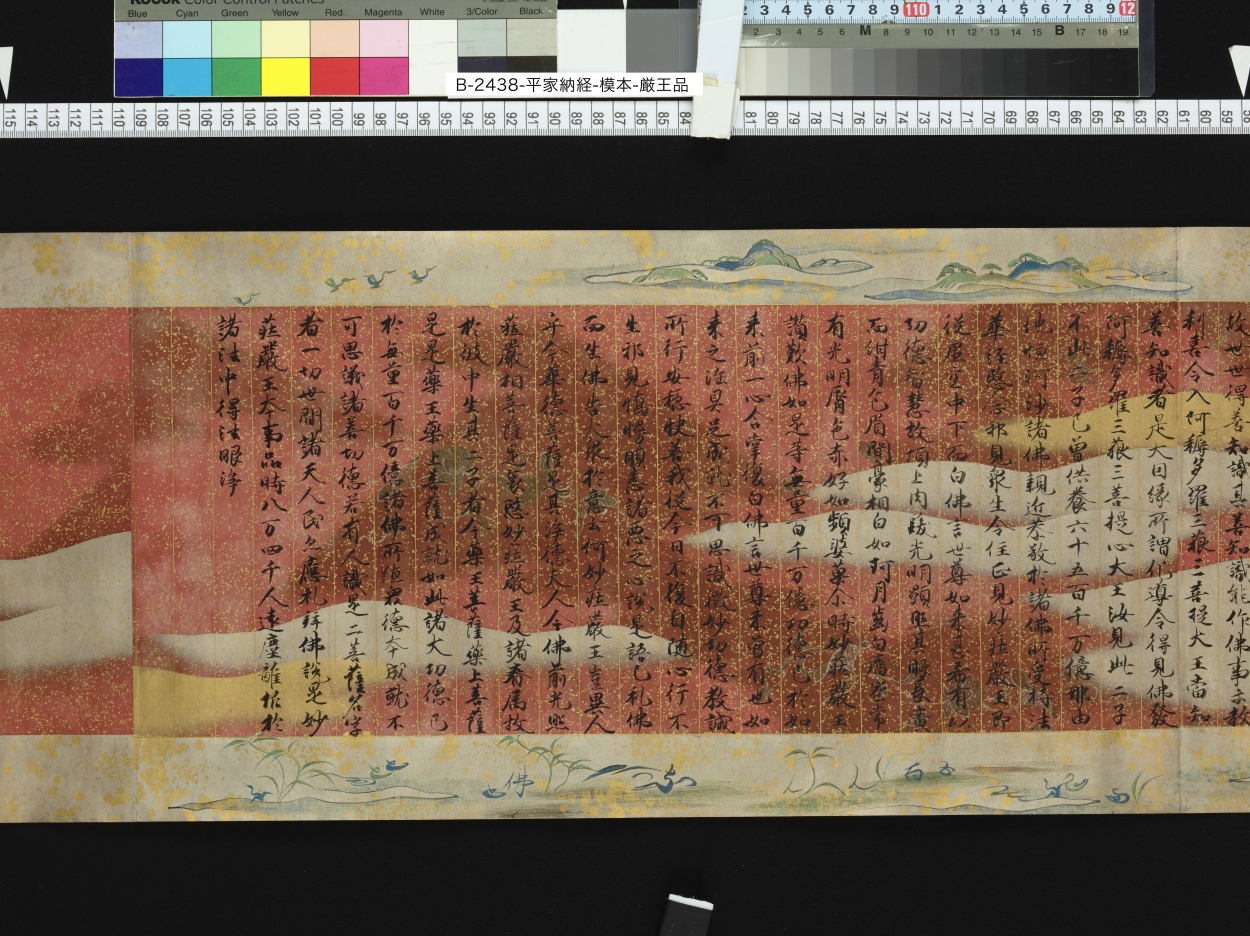 KODAK Color Control Patches
Blue Cyan Green Yellow Red Magenta White 3/Color Black
B-2438-平家納経-模本-厳王品
故世世得善知識其善知識能作佛事示教
利喜令入阿耨多羅三藐三菩提大王當知
善知識者是大因緣所謂化導令得見佛發
阿耨多羅三藐三菩提心大王汝見此二子
不此二子已曾供養六十五百千万億那由
他恒河沙諸佛親近恭敬於諸佛所受持法
華經愍念邪見衆生令住正見妙莊嚴王即
從虛空中下而白佛言世尊如來甚希有以
功德智慧故頂上肉髻光明顯照其眼長廣
而紺青色眉間豪相白如珂月齒白齊密常
有光明脣色赤好如頻婆菓尒時妙莊嚴王
讚歎佛如是等無量百千万億功德已於如
來前一心合掌復白佛言世尊未曾有也如
來之法具足成就不可思議微妙功德教誡
所行安穩快善我從今日不復自隨心行不
生邪見憍慢瞋恚諸惡之心說是語已礼佛
而出佛告大衆於意云何妙莊嚴王豈異人
乎今華德菩薩是其淨德夫人今佛前光照
莊嚴相菩薩是哀愍妙莊嚴王及諸眷属故
於彼中生其二子者今藥王菩薩藥上菩薩
是是藥王藥上菩薩成就如此諸大功德已
於無量百千万億諸佛所殖衆德本成就不
可思議諸善功德若有人識是二菩薩名字
者一切世間諸天人民亦應礼拜佛說是妙
莊嚴王本事品時八万四千人遠塵離垢於
諸法中得法眼淨